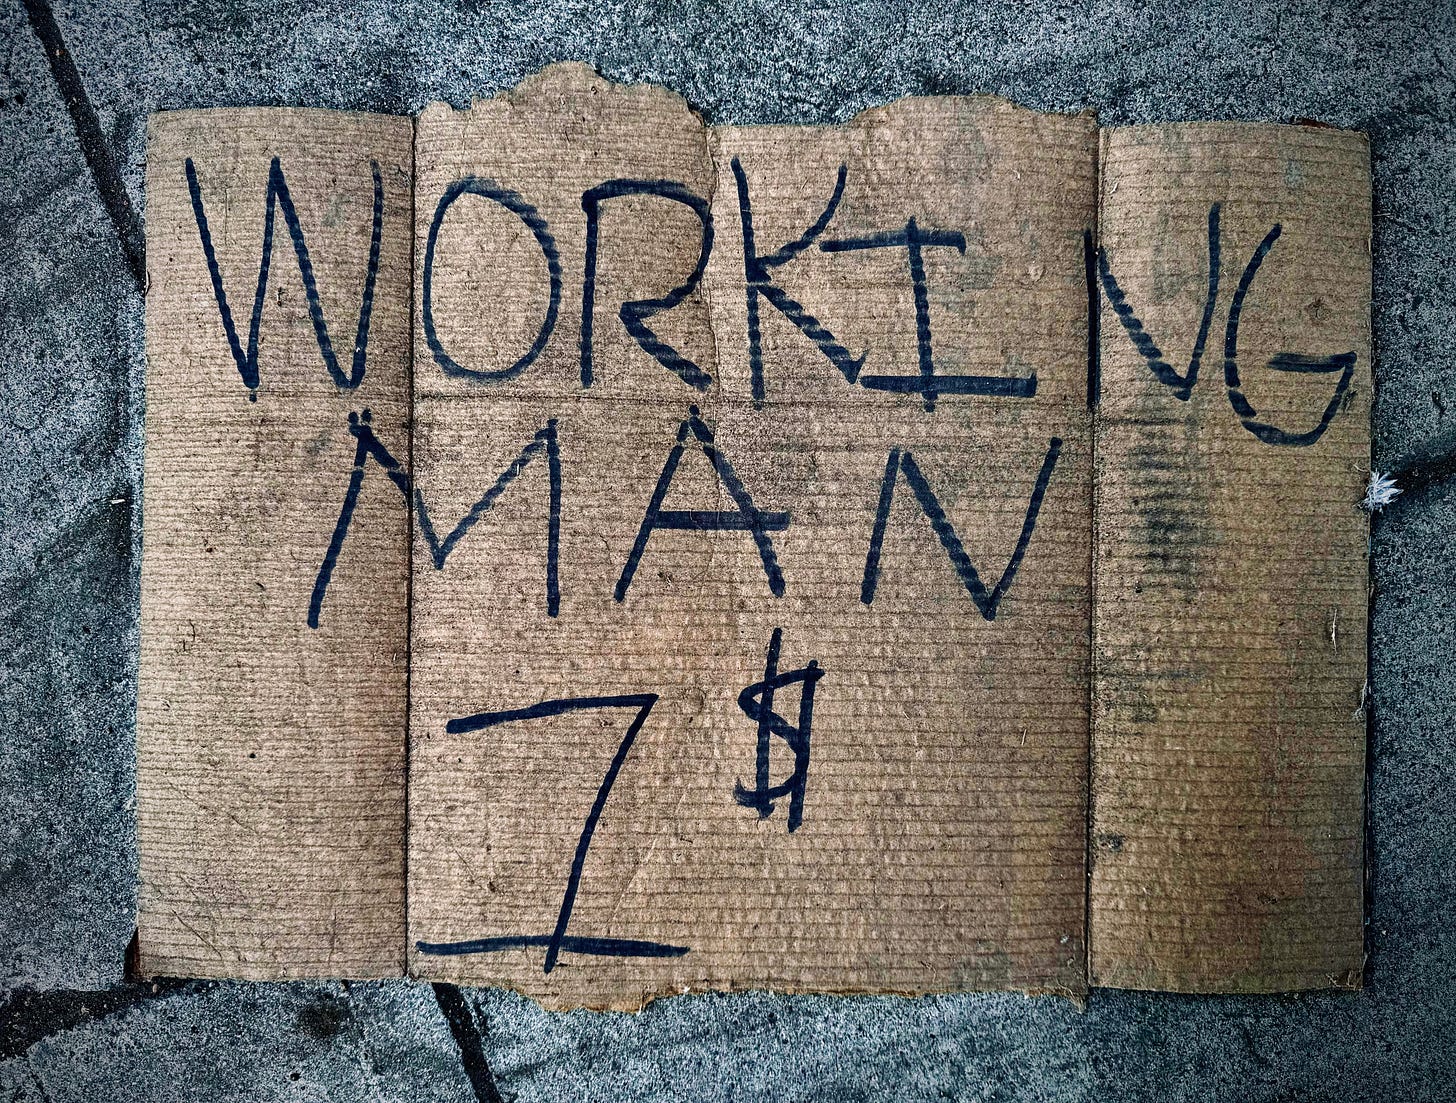 WORKING
MAN
1 $